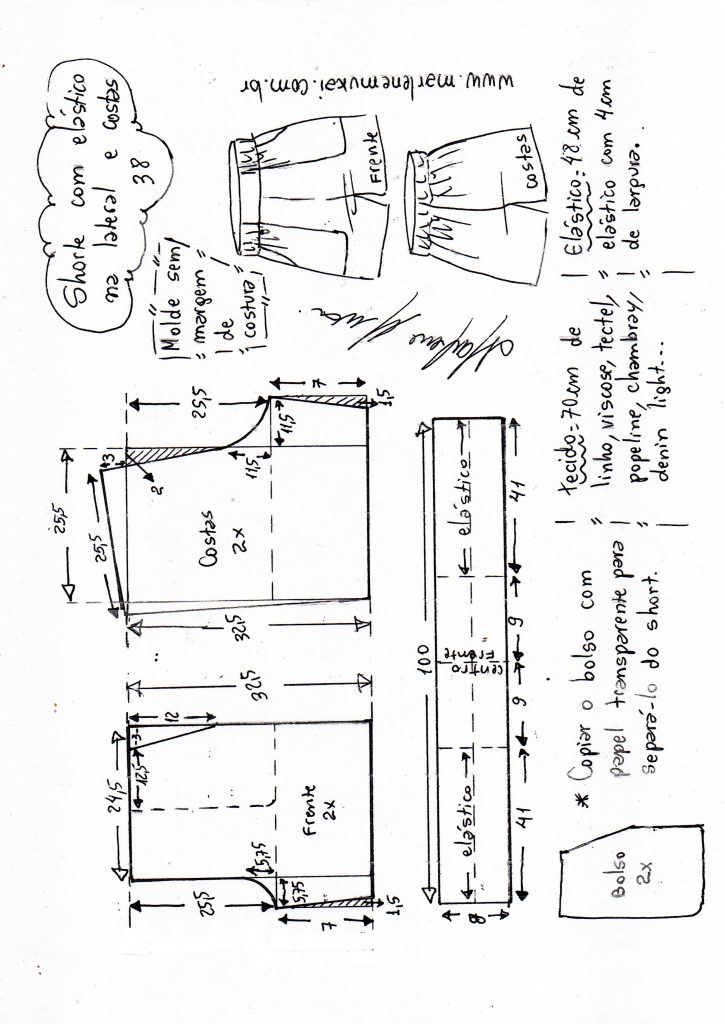 Shorte com elástico
na lateral e costas
38
www.marlenemukai.com.br
Frente
costas
Molde sem
margem
de
costura
Elástico: 48cm de
elástico com 4cm
de largura.
tecido=70cm de
linho, viscose, tectel,
popeline, chambray,
denin light...
* Copiar o bolso com
papel transparente para
separá-lo do short.
Bolso
2x
25,5
25,5
3
2
25,5
11,5
11,5
7
1,5
Costas
2x
32,5
32,5
24,5
12
3
12,5
Frente
2x
5,75
5,75
25,5
7
1,5
100
elástico
centro
Frente
elástico
41
9
9
41
8